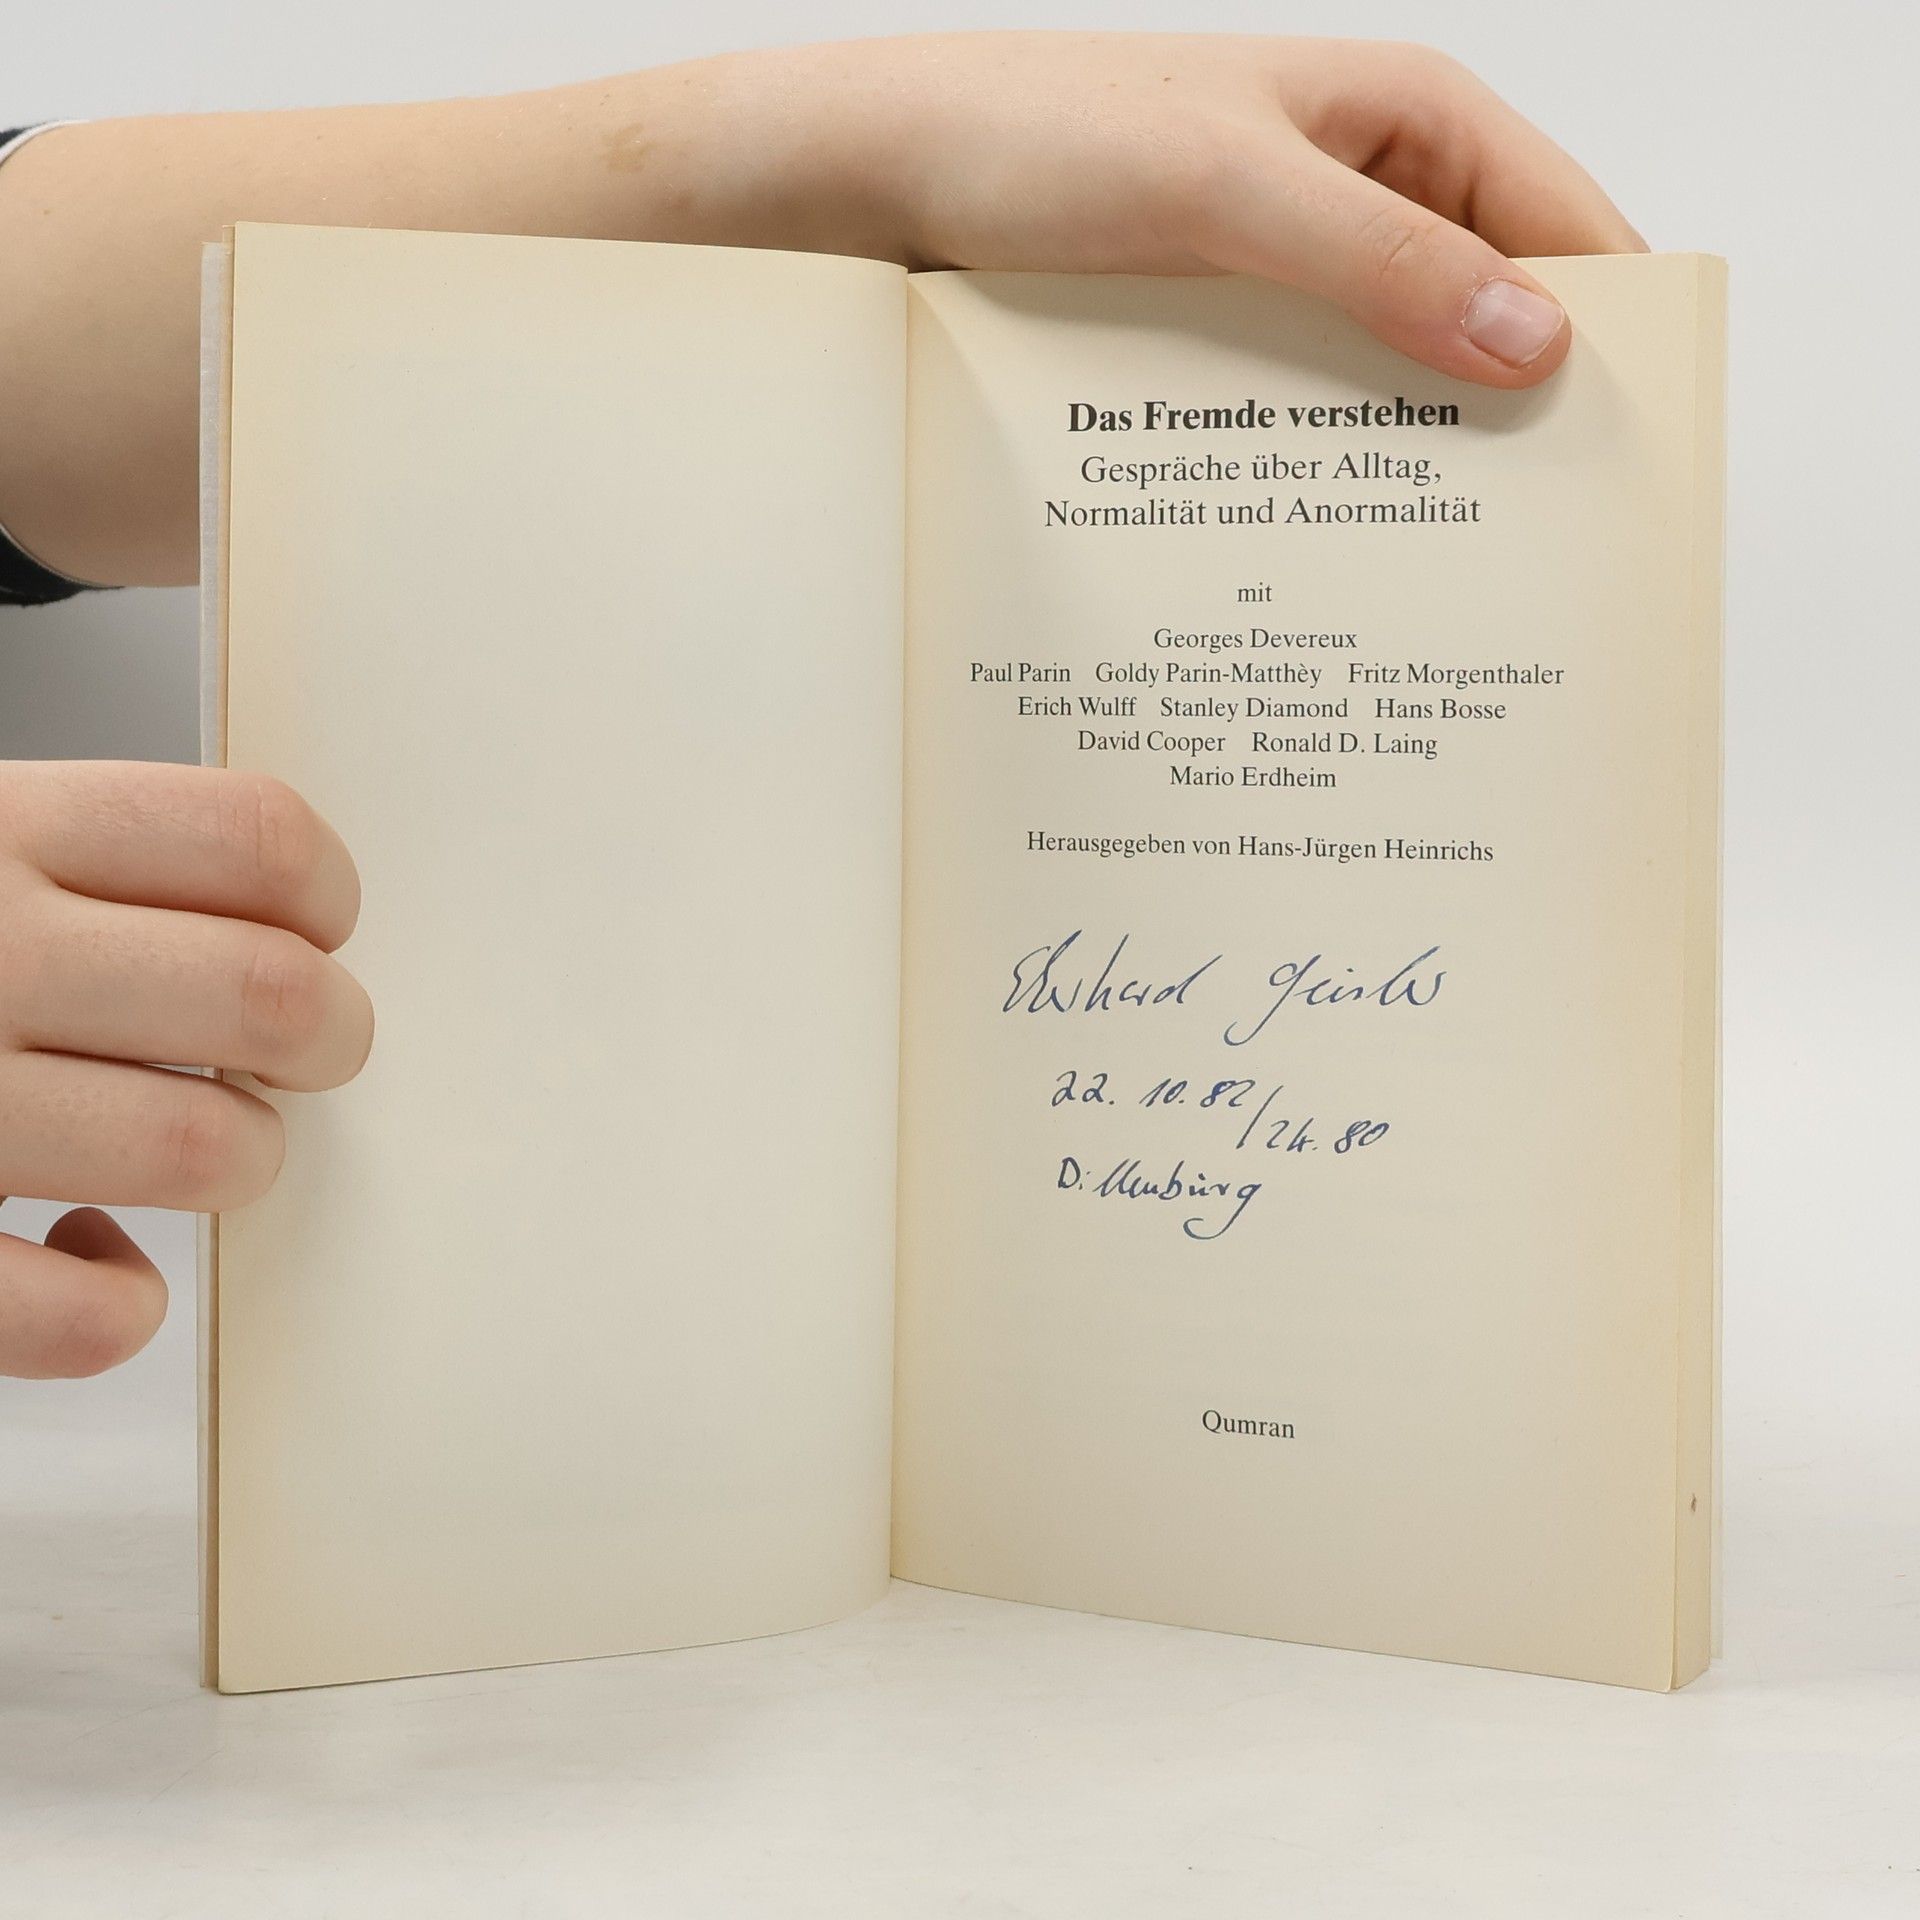 Das Fremde verstehen
Gespräche über Alltag,
Normalität und Anormalität
mit
Georges Devereux
Paul Parin Goldy Parin-Matthèy Fritz Morgenthaler
Erich Wulff Stanley Diamond Hans Bosse
David Cooper Ronald D. Laing
Mario Erdheim
Herausgegeben von Hans-Jürgen Heinrichs
Eberhard Geisler
22. 10. 82/24.80
Dillenburg
Qumran